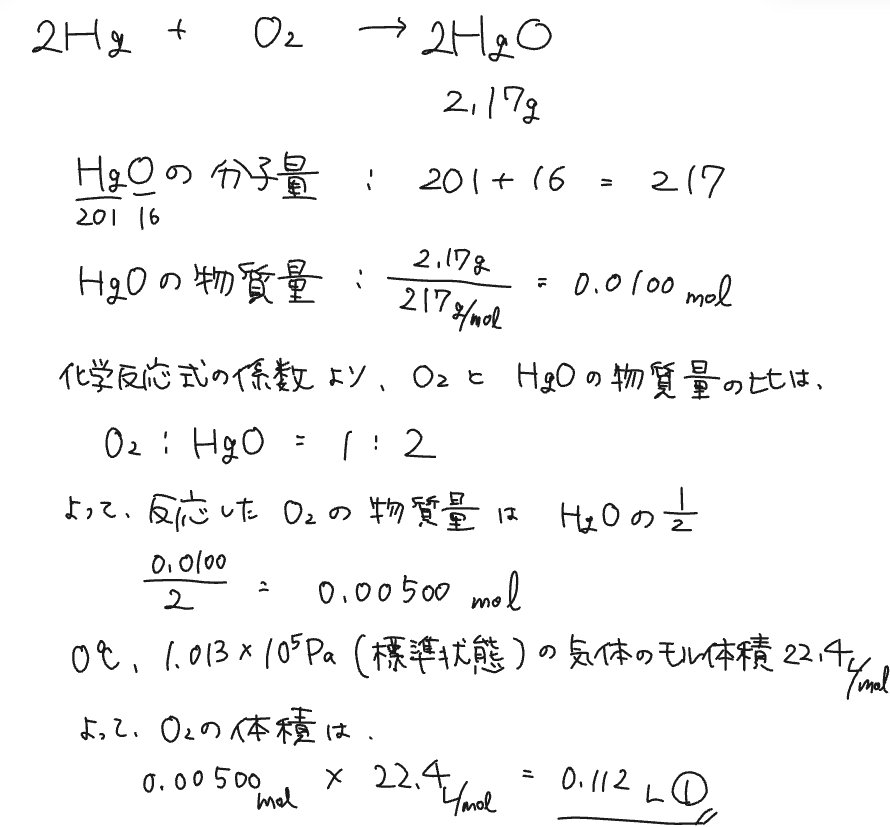 2Hg + O₂ → 2HgO
2.17g
HgOの分子量 : 201 + 16 = 217
201 16
HgOの物質量 : 2.17g / 217g/mol = 0.0100 mol
化学反応式の係数より、O₂とHgOの物質量の比は、
O₂ : HgO = 1 : 2
よって、反応したO₂の物質量はHgOの1/2
0.0100 / 2 = 0.00500 mol
0℃、1.013×10⁵Pa(標準状態)の気体のモル体積22.4L/mol
よって、O₂の体積は、
0.00500mol × 22.4L/mol = 0.112 L ①